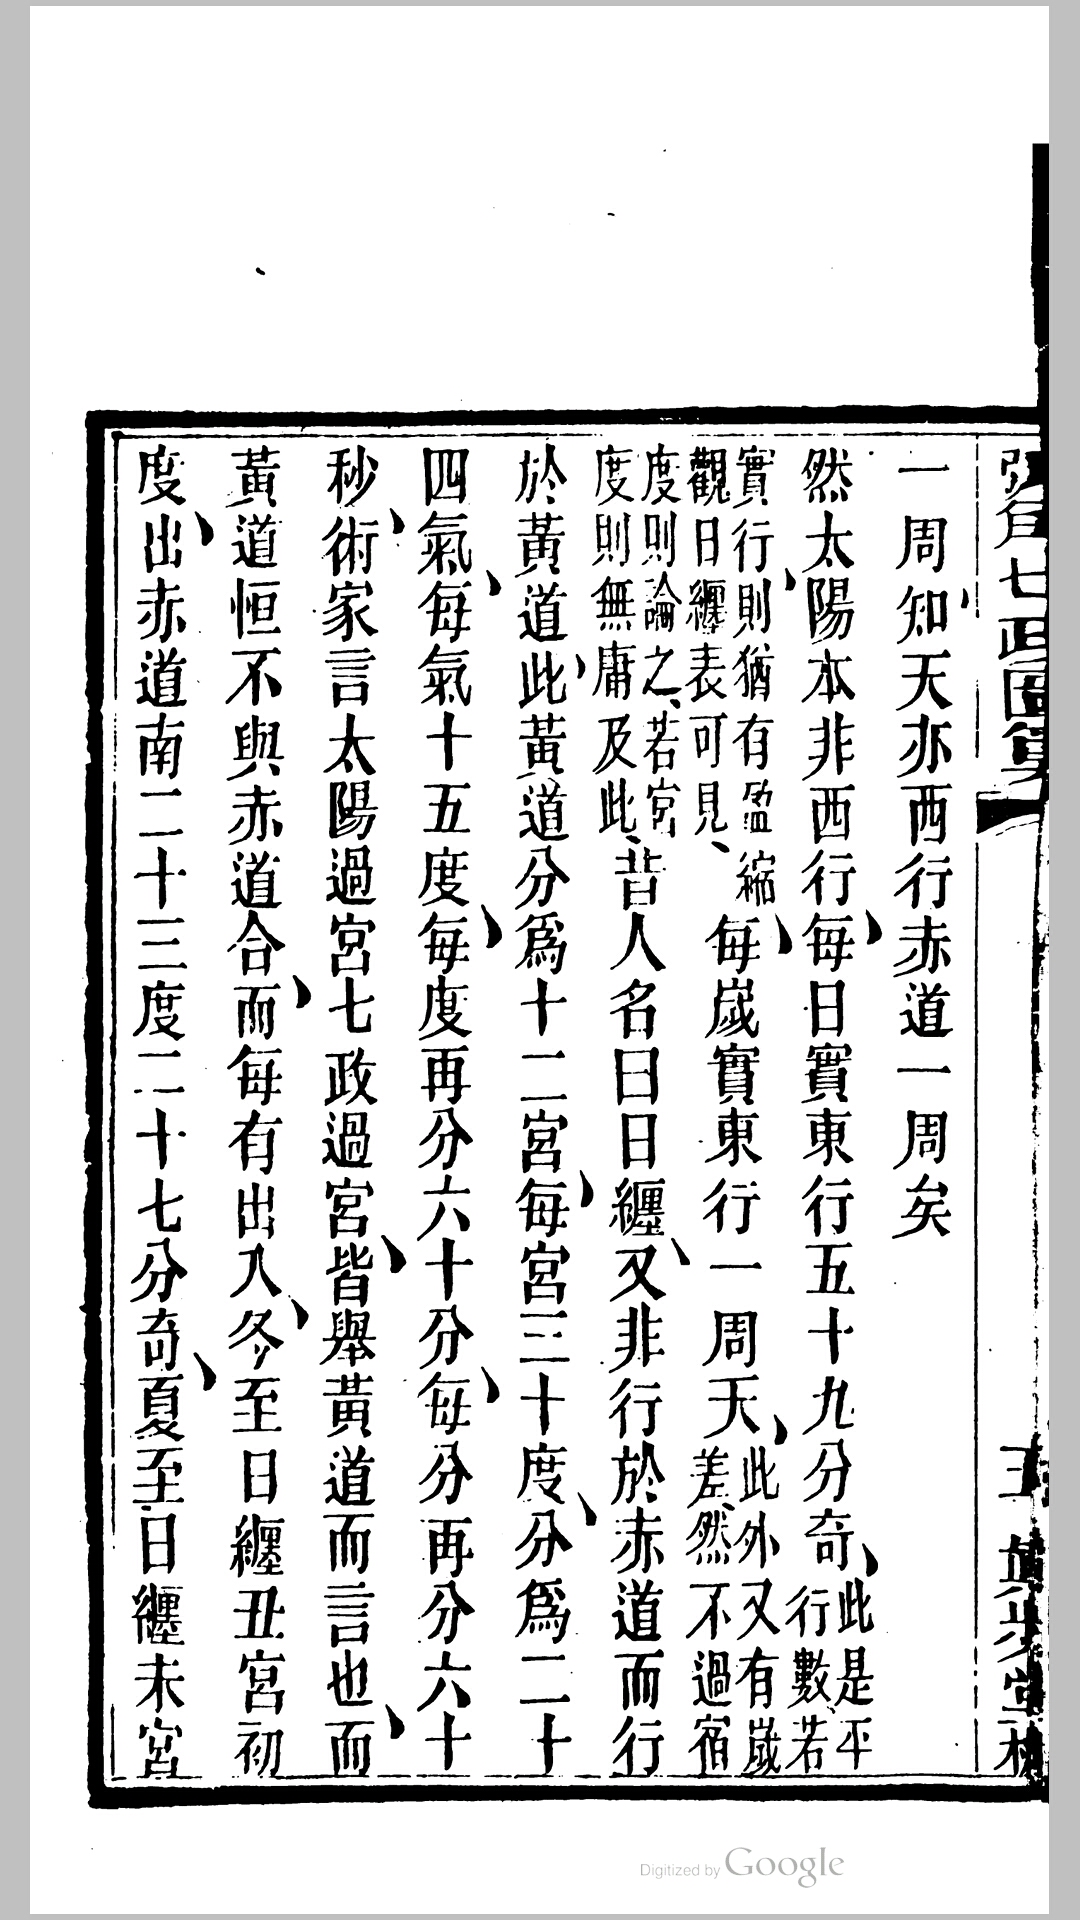 一周知天亦西行赤道一周矣
然太陽本非西行每日實東行五十九分奇此是平行數若
實行則猶有盈縮觀日纏表可見每歲實東行一周天此外又有歲差然不過宿
度則論之若宮度則無庸及此昔人名曰日纏又非行於赤道而行
於黃道此黃道分爲十二宮每宮三十度分爲二十
四氣每氣十五度每度再分六十分每分再分六十
秒術家言太陽過宮七政過宮皆舉黃道而言也而
黃道恒不與赤道合而每有出入冬至日纏丑宮初
度出赤道南二十三度二十七分奇夏至日纏未宮
Digitized by Google